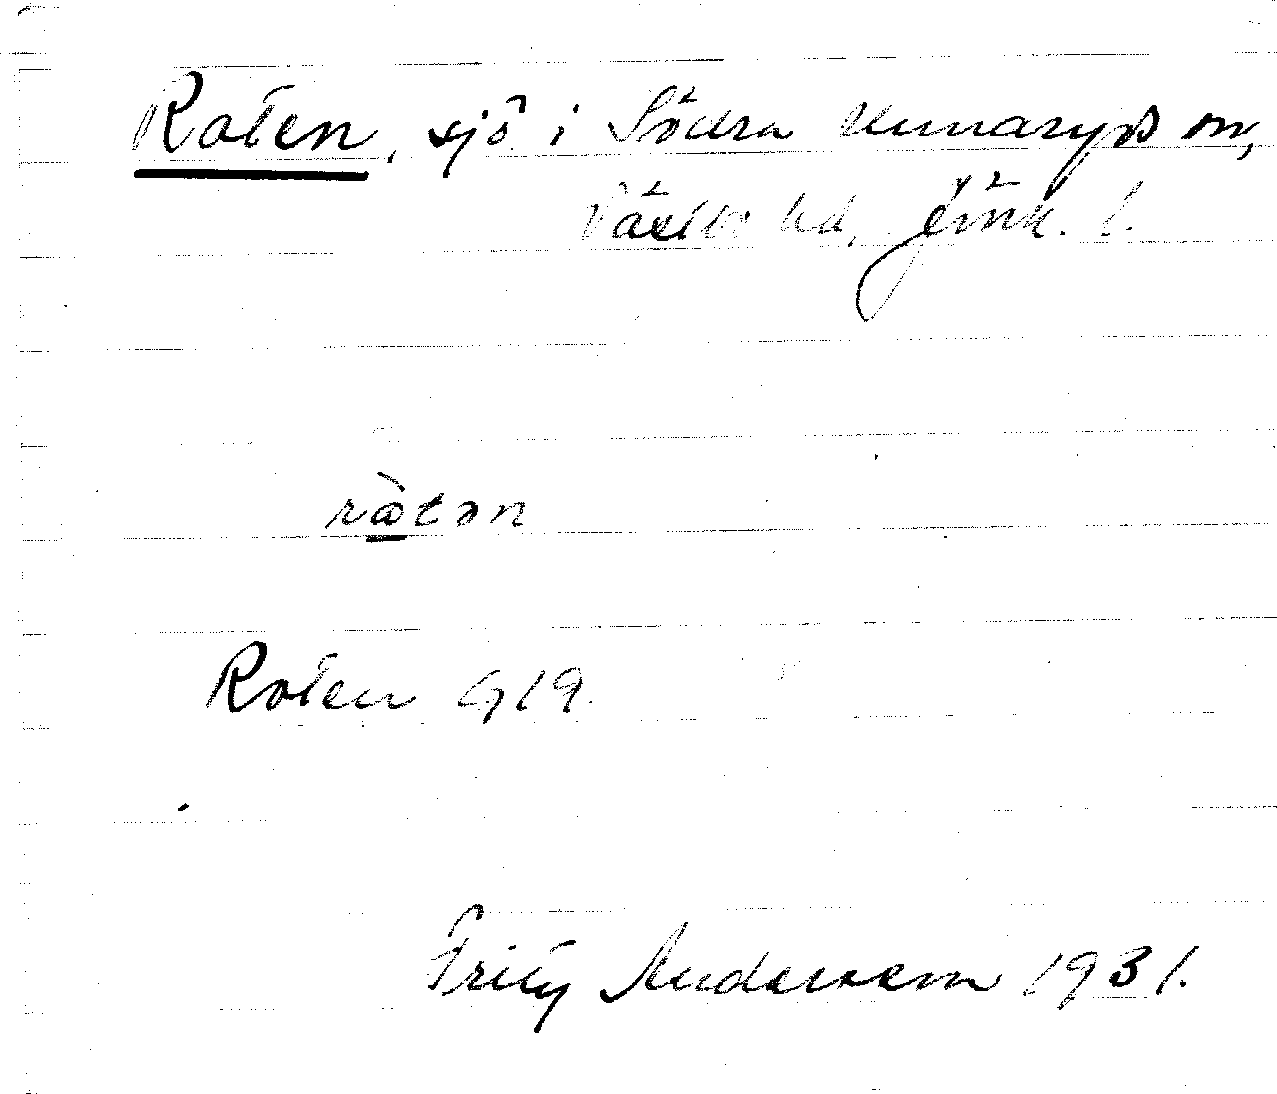 Roten, sjö i Södra Unnaryds sn,
Västbo hd, Jönk. l.
rὼtən
Roten G19.
Fritz Andersson 1931.